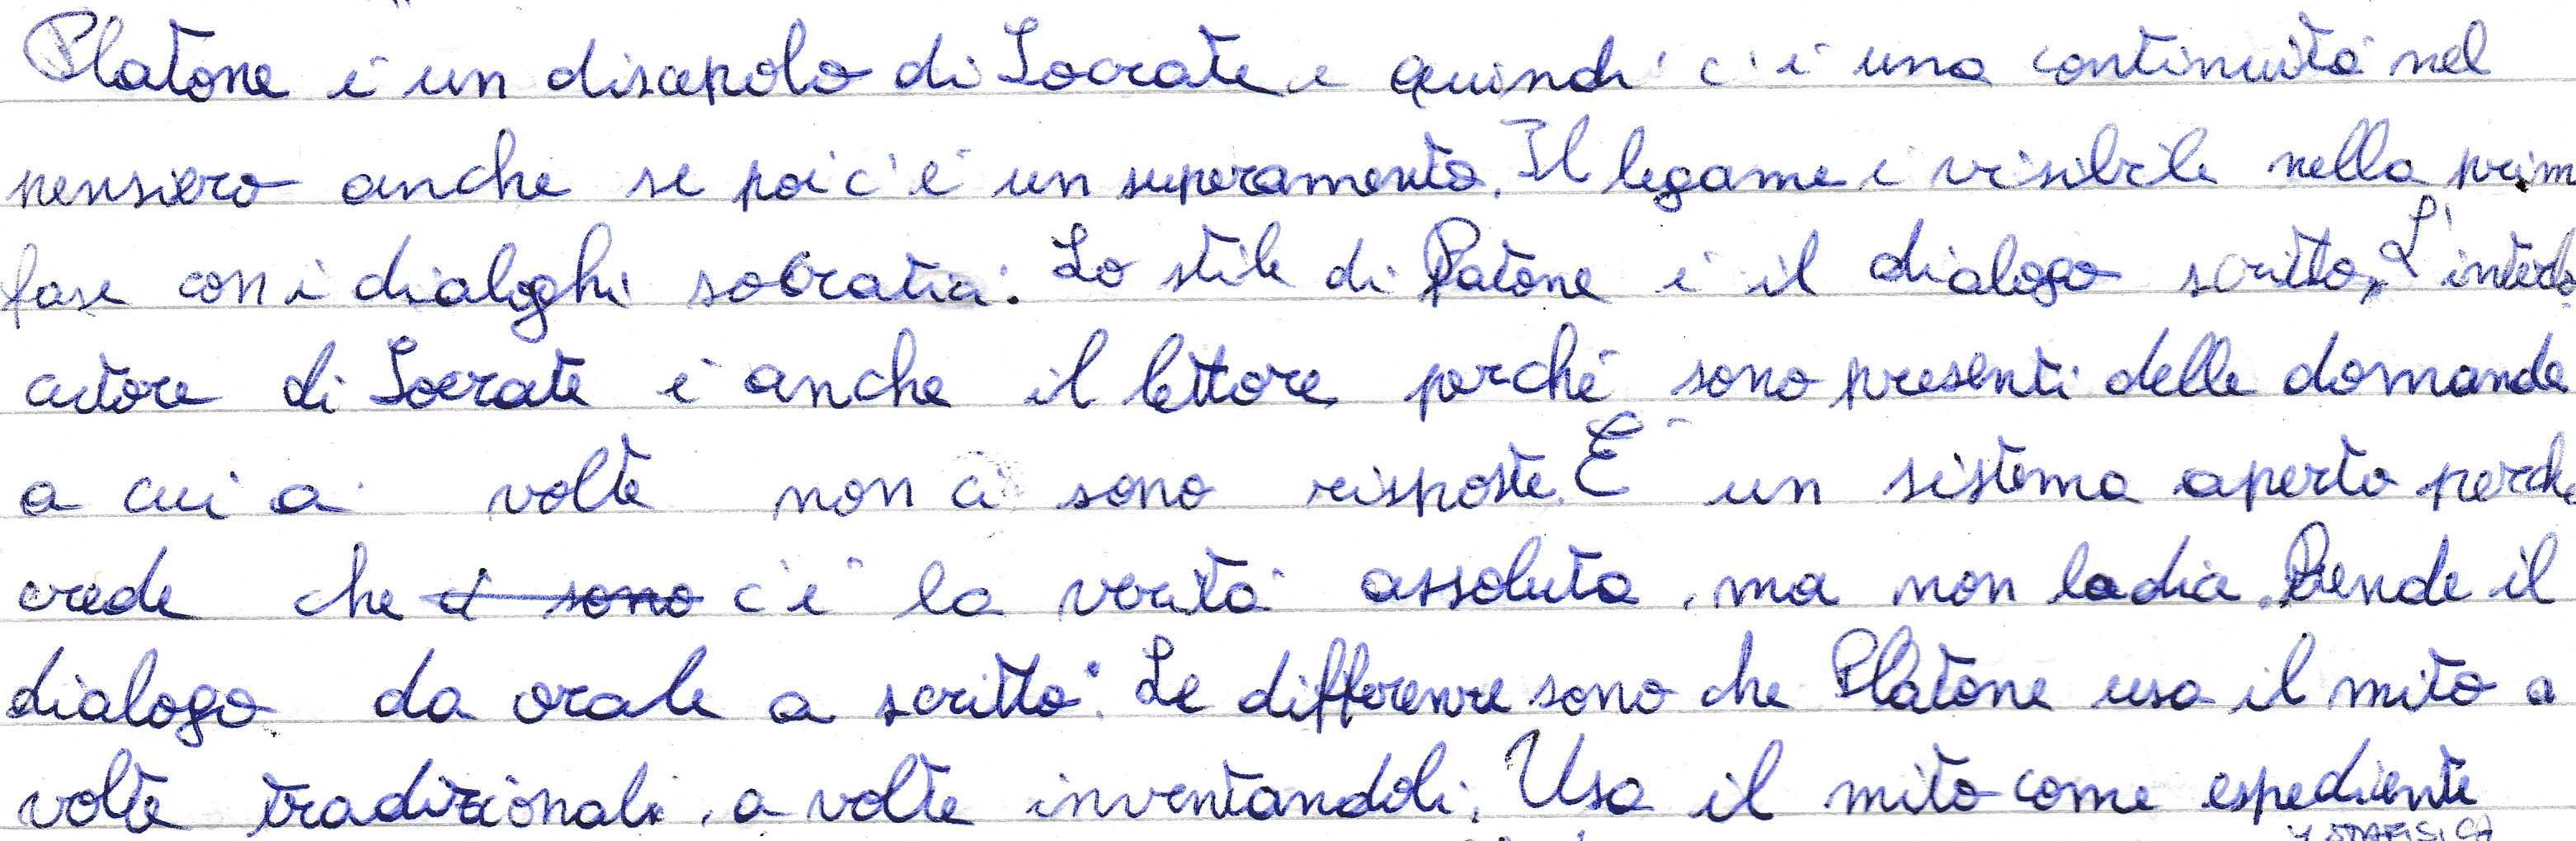 Platone è un discepolo di Socrate e quindi c'è una continuità nel
pensiero anche se poi c'è un superamento. Il legame è visibile nella prim
fase con i dialoghi socratici. Lo stile di Platone è il dialogo scritto, L'interlo
cutore di Socrate è anche il lettore perché sono presenti delle domande
a cui a volte non ci sono risposte. È un sistema aperto perché
crede che ci sono c'è la verità assoluta, ma non la dia. Prende il
dialogo da orale a scritto. Le differenze sono che Platone usa il mito a
volte tradizionali, a volte inventandoli. Usa il mito come espediente